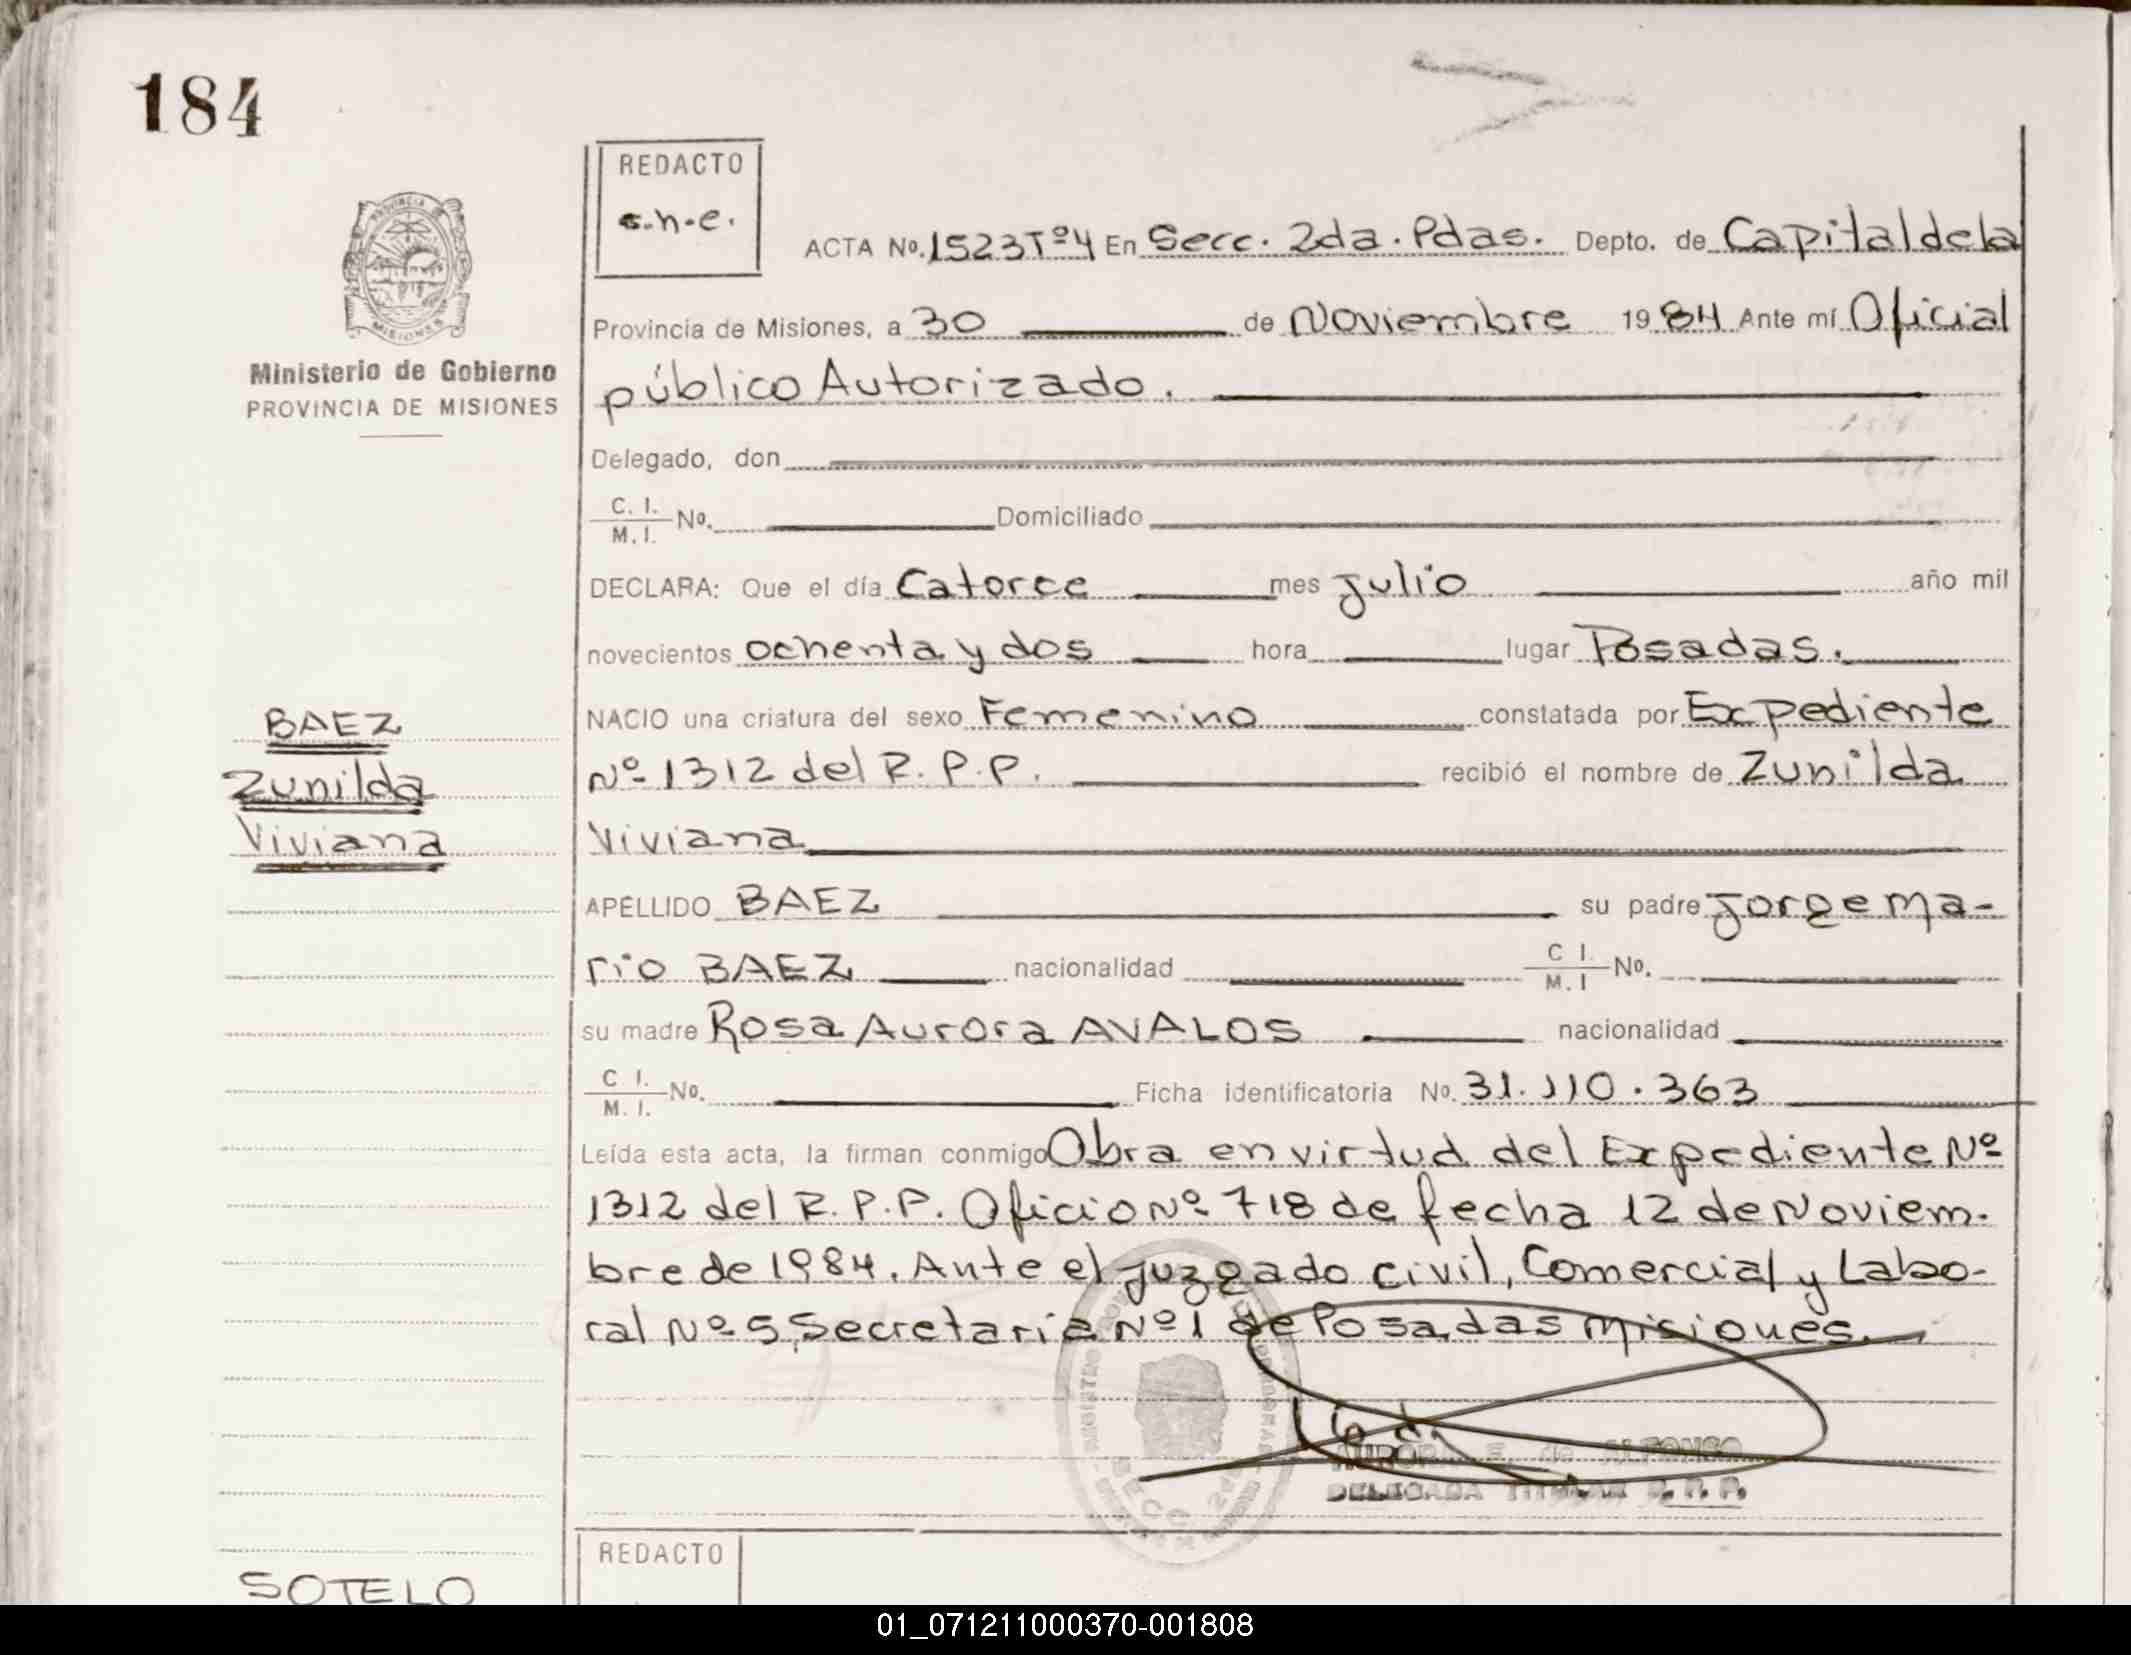 184
REDACTO
s.h.e.
ACTA No. 1523 Tº4 En Secc. 2da. Pdas. Depto. de Capital de la
Provincia de Misiones, a 30 de Noviembre 1984 Ante mí Oficial
público Autorizado.
PROVINCIA DE
MISIONES
Ministerio de Gobierno
PROVINCIA DE MISIONES
Delegado, don
C. I.
M. I. No. Domiciliado
DECLARA: Que el día Catorce mes Julio año mil
novecientos ochenta y dos hora lugar Posadas.
BAEZ
Zunilda
Viviana
NACIO una criatura del sexo Femenino constatada por Expediente
Nº 1312 del R. P. P. recibió el nombre de Zunilda
Viviana
APELLIDO BAEZ su padre Jorge Ma-
rio BAEZ nacionalidad C I. M. I No.
su madre Rosa Aurora AVALOS nacionalidad
C I. M. I. No. Ficha identificatoria No. 31.110.363
Leída esta acta, la firman conmigo Obra en virtud del Expediente Nº
1312 del R. P. P. Oficio Nº 718 de fecha 12 de Noviem-
bre de 1984. Ante el Juzgado Civil, Comercial y Labo-
ral Nº 5, Secretaria Nº 1 de Posadas Misiones.
SECC. 2da
AURORA E. de ALFONSO
DELEGADA TITULAR R. P. P.
REDACTO
SOTELO
01_071211000370-001808